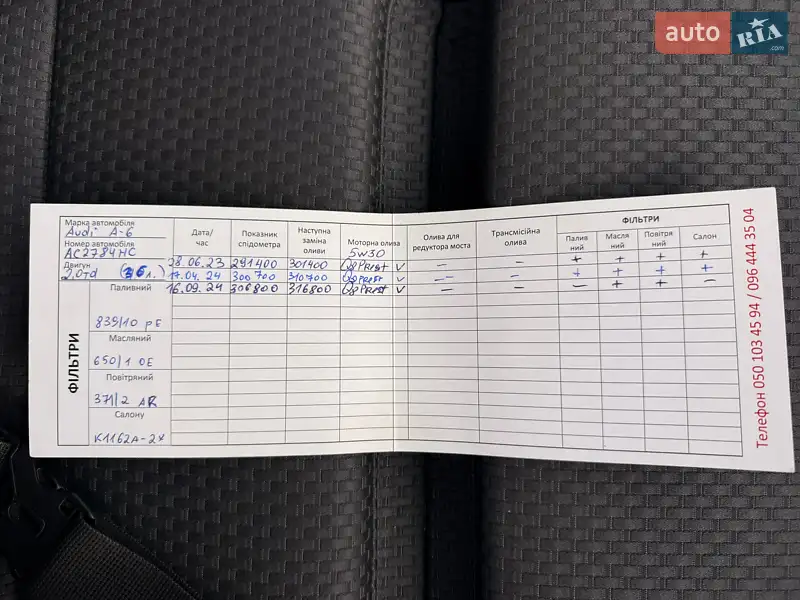 auto RIA .com
Марка автомобіля
Audi A-6
Номер автомобіля
AC2784HC
Двигун
2,0td
Дата/ час
Показник спідометра
Наступна заміна оливи
Моторна олива
5w30
Олива для редуктора моста
Трансмісійна олива
ФІЛЬТРИ
Палив ний
Масля ний
Повітря ний
Салон
28.06.23 291400 301400 V — — + + + +
17.04.24 300700 310700 V — — + + + +
16.09.24 306800 316800 V — — — + + —
ФІЛЬТРИ
Паливний
839/10 PE
Масляний
650/1 OE
Повітряний
371/2 AR
Салону
K1162A-2x
Телефон 050 103 45 94 / 096 444 35 04